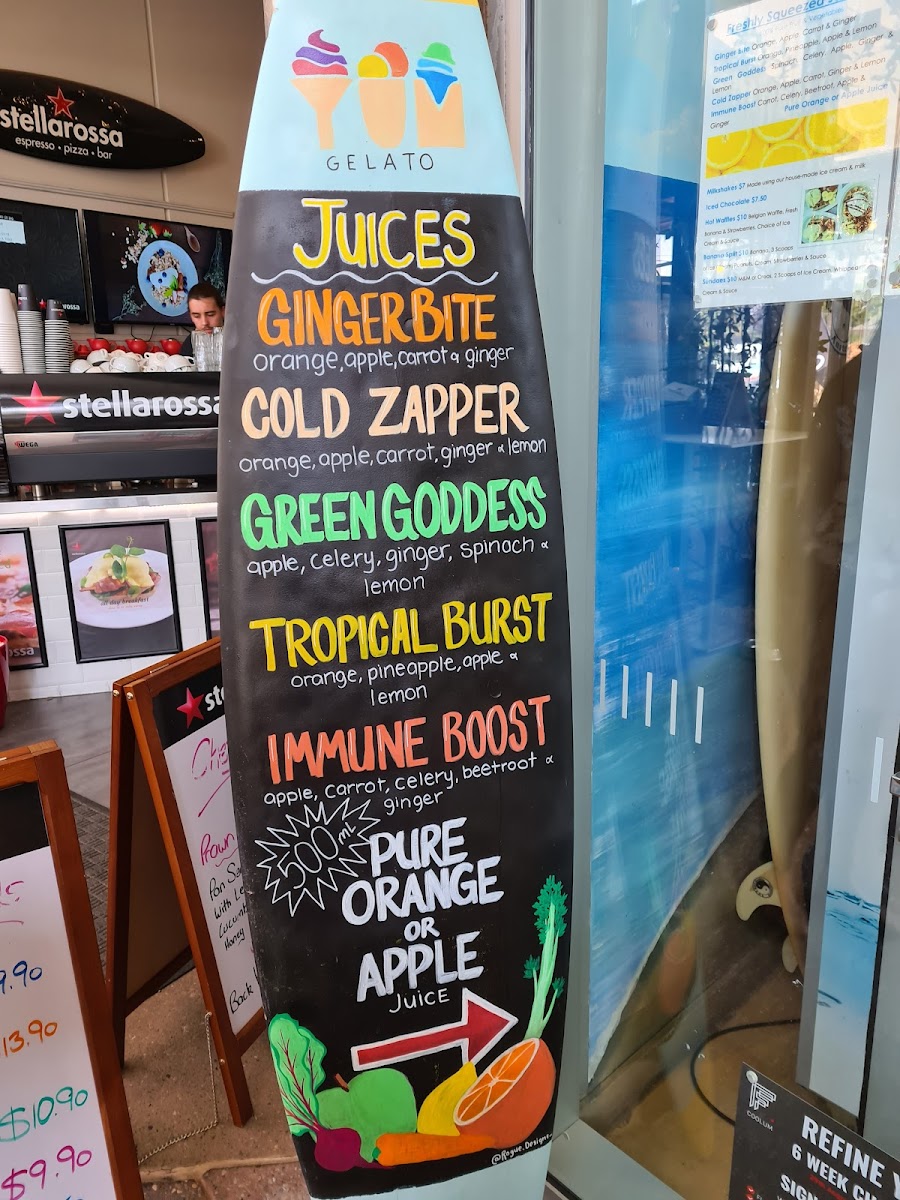 stellarossa
espresso • pizza • bar
stellarossa
WEGA
all day breakfast
YUM
GELATO
JUICES
GINGER BITE
orange, apple, carrot & ginger
COLD ZAPPER
orange, apple, carrot, ginger & lemon
GREEN GODDESS
apple, celery, ginger, spinach &
lemon
TROPICAL BURST
orange, pineapple, apple &
lemon
IMMUNE BOOST
apple, carrot, celery, beetroot &
ginger
500ml
PURE
ORANGE
OR
APPLE
JUICE
@Rogue.Designs
Freshly Squeezed
Ginger Bite Orange, Apple, Carrot & Ginger
Tropical Burst Orange, Pineapple, Apple & Lemon
Green Goddess Spinach, Celery, Apple, Ginger &
Lemon
Cold Zapper Orange, Apple, Carrot, Ginger & Lemon
Immune Boost Carrot, Celery, Beetroot, Apple &
Ginger
Pure Orange or Apple Juice
Milkshakes $7 Made using our house-made ice cream & milk
Iced Chocolate $7.50
Hot Waffles $10 Belgian Waffle, Fresh
Banana & Strawberries, Choice of Ice
Cream & Sauce
Banana Split $10 Banana, 3 Scoops
Peanuts, Cream, Strawberries & Sauce
Sundaes $10 M&M or Oreos, 2 Scoops of Ice Cream, Whipped
Cream & Sauce
Prawn
With Le
Honey
Back
9.90
13.90
$10.90
$9.90
COOLUM
REFINE
6 WEEK
SIGN